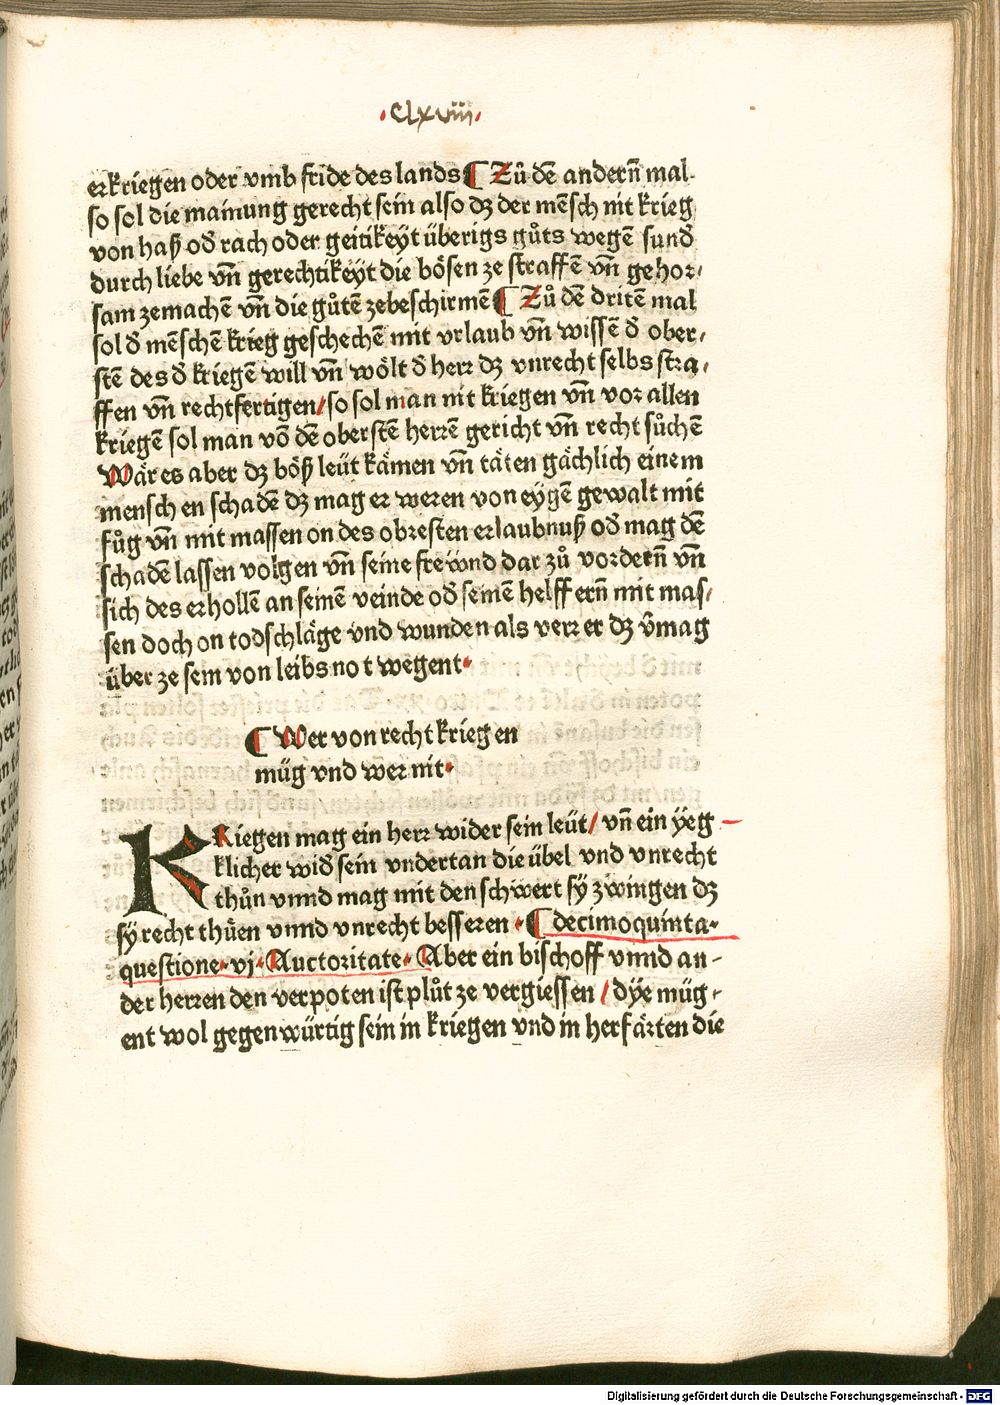 ·Clxviii·
erkriegen oder vmb fride des lands ¶ Zů dē andern̄ mal
so sol die mainung gerecht sein also dʒ der mēsch nit krieg
von haß od̄ rach oder geitikeyt überigs gůts wegē sund̄
durch liebe vn̄ gerechtikeyt die bösen ze straffē vn̄ gehor⸗
sam zemachē vn̄ die gůtē zebeschirmē ¶ Zů dē dritē mal
sol d̄ mēschē krieg geschechē mit vrlaub vn̄ wissē d̄ ober⸗
stē des d̄ kriegē will vn̄ wölt d̄ herr dʒ vnrecht selbs stra⸗
ffen vn̄ rechtfertigen/ so sol man nit kriegen vn̄ vor allen
kriegē sol man vō dē oberstē herrē gericht vn̄ recht sůchē
Wär es aber dʒ böß leüt kämen vn̄ täten gächlich einem
mensch en schadē dʒ mag er weren von eygē gewalt mit
fůg vn̄ mit massen on des obresten erlaubnuß od̄ mag dē
schadē lassen volgen vn̄ seine frewnd dar zů vordern̄ vn̄
sich des erhollē an seinē veinde od̄ seinē helff ern̄ mit mas⸗
sen doch on todschläge vnd wunden als verr er dʒ v̄mag
über ze sein von leibs no t wegent·
¶ Wer von recht krieg en
müg vnd wer nit·
KRiegen mag ein herr wider sein leüt/ vn̄ ein yeg
klicher wid̄ sein vndertan die übel vnd vnrecht
thůn vnnd mag mit den schwert sÿ zwingen dʒ
sÿ recht thůen vnnd vnrecht besseren · ¶ decimoquinta·
questione· vj· Auctoritate· Aber ein bischoff vnnd an⸗
der herren den verpoten ist plůt ze vergiessen / dÿe müg⸗
ent wol gegenwürtig sein in kriegen vnd in herfärten die
Digitalisierung gefördert durch die Deutsche Forschungsgemeinschaft - DFG